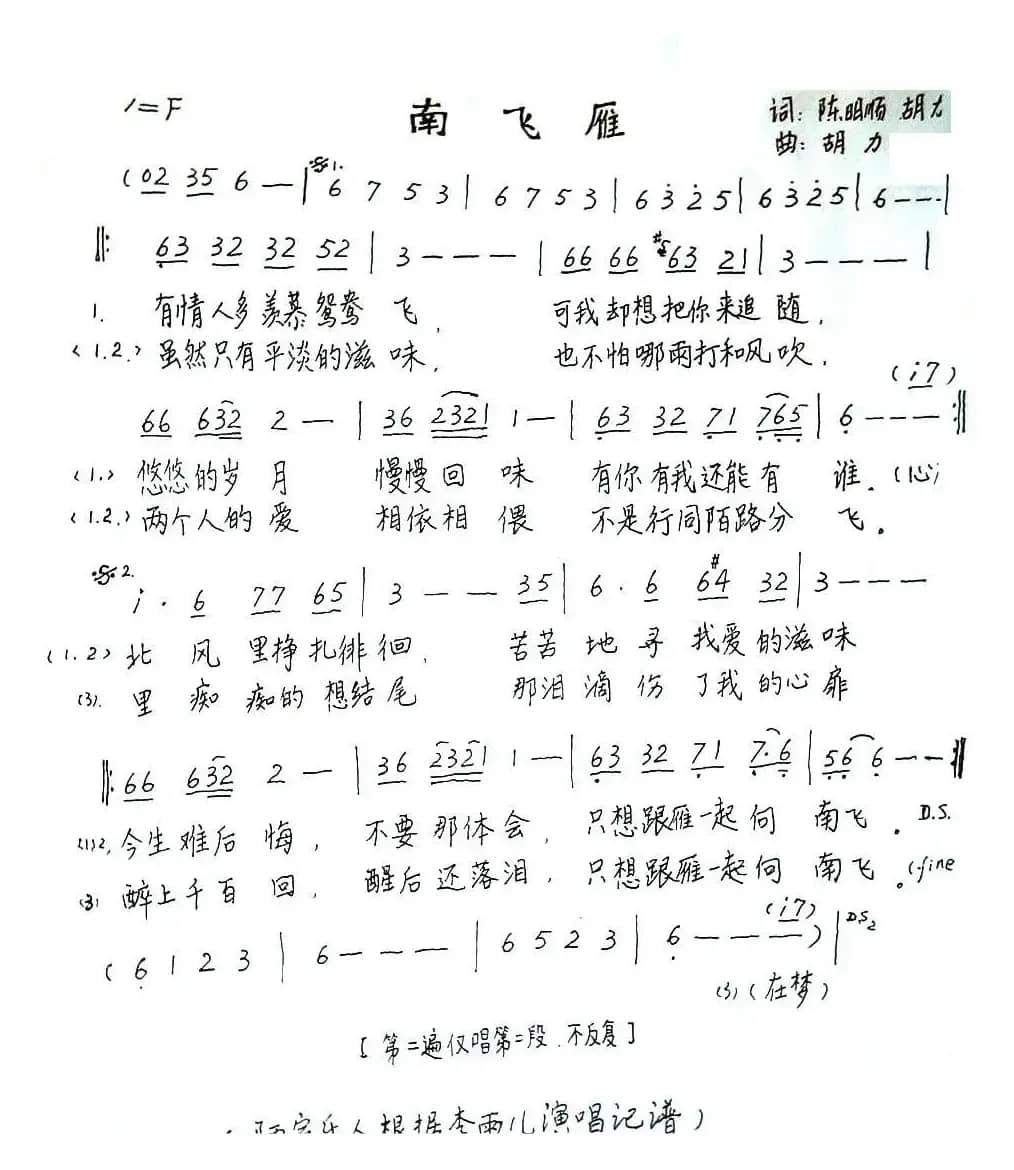 1=F 南飞雁 词：陈明顺 胡力
曲：胡力
(02 35 6 — | 𝄋1. 6 7 5 3 | 6 7 5 3 | 6 3̇ 2̇ 5 | 6 3̇ 2̇ 5 | 6 - - - |
‖: 6̣3 32 32 52 | 3 - - - | 66 66 #5 6̣3 21 | 3 - - - |
1. 有情人多羡慕鸳鸯飞， 可我却想把你来追随，
(1.2.) 虽然只有平淡的滋味， 也不怕哪雨打和风吹， (i7)
66 632 2 — | 36 2321 1 — | 6̣3 32 7̣1 7̣6̣5̣ | 6̣ - - - :‖
(1.) 悠悠的岁月 慢慢回味 有你有我还能有谁。(心)
(1.2.) 两个人的爱 相依相偎 不是行同陌路分飞。
𝄋2. i · 6 77 65 | 3 — — 35 | 6 · 6 6#4 32 | 3 - - -
(1.2) 北风里挣扎徘徊， 苦苦地寻我爱的滋味
(3). 里痴痴的想结尾 那泪滴伤了我的心扉
‖: 66 632 2 — | 36 2321 1 — | 6̣3 32 7̣1 7̣·6̣ | 5̣6̣ 6̣ — — :‖
(1)2, 今生难后悔， 不要那体会， 只想跟雁一起向南飞。D.S.
(3) 醉上千百回， 醒后还落泪， 只想跟雁一起向南飞。(fine
(6̣ 1 2 3 | 6 - - - | 6 5 2 3 | 6̣ - - - (i7) ) | D.S2
(3) (在梦)
[第二遍仅唱第二段.不反复]
根据李雨儿演唱记谱)